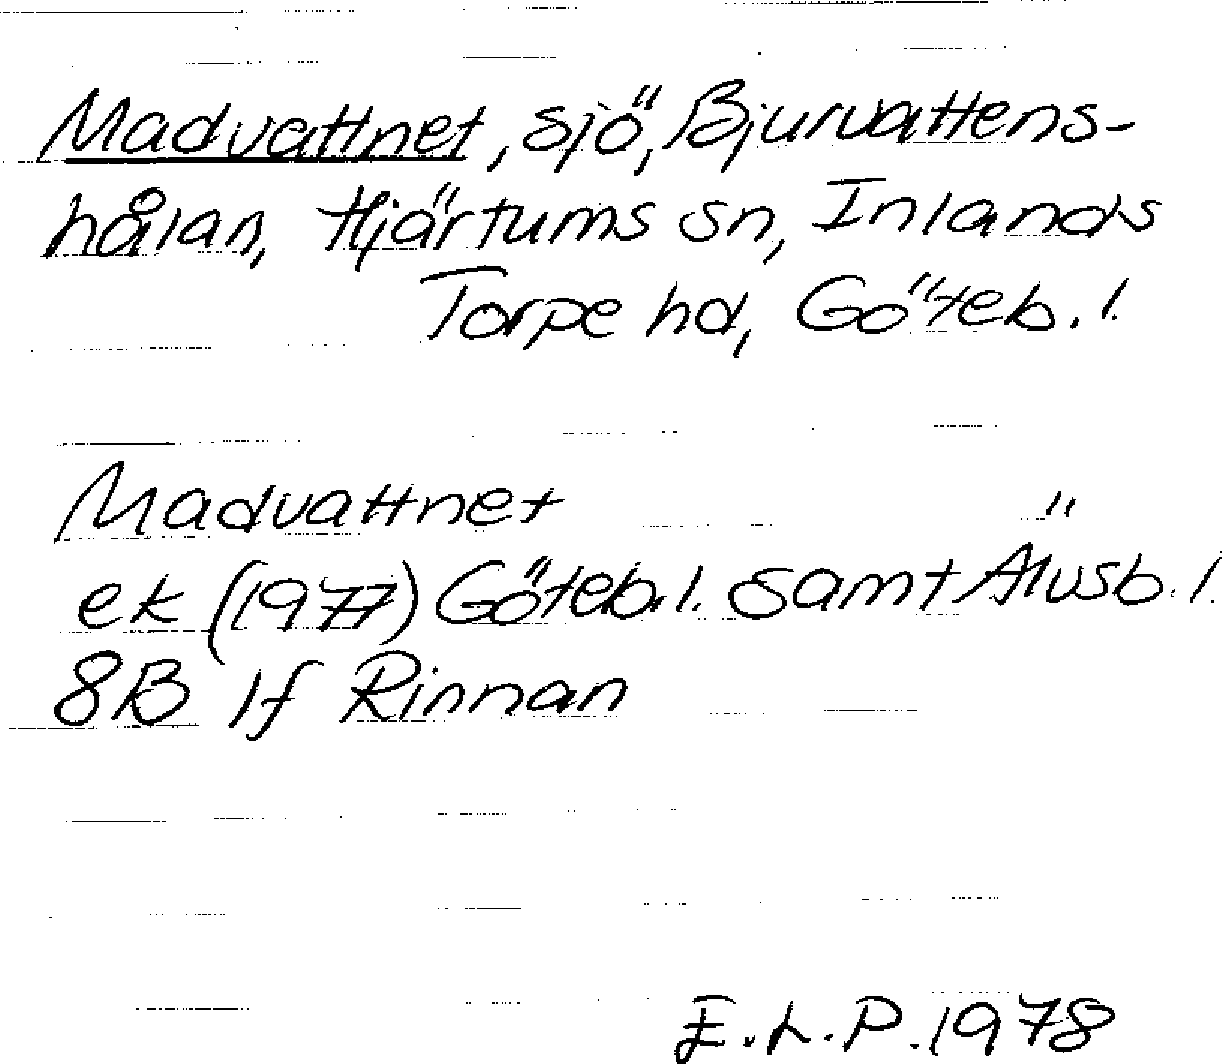 Madvattnet, sjö, Bjurvattens-
hålan, Hjärtums sn, Inlands
Torpe hd, Göteb. l.
Madvattnet "
ek (1977) Göteb. l. samt Älvsb. l.
8B 1f Rinnan
E.L.P. 1978